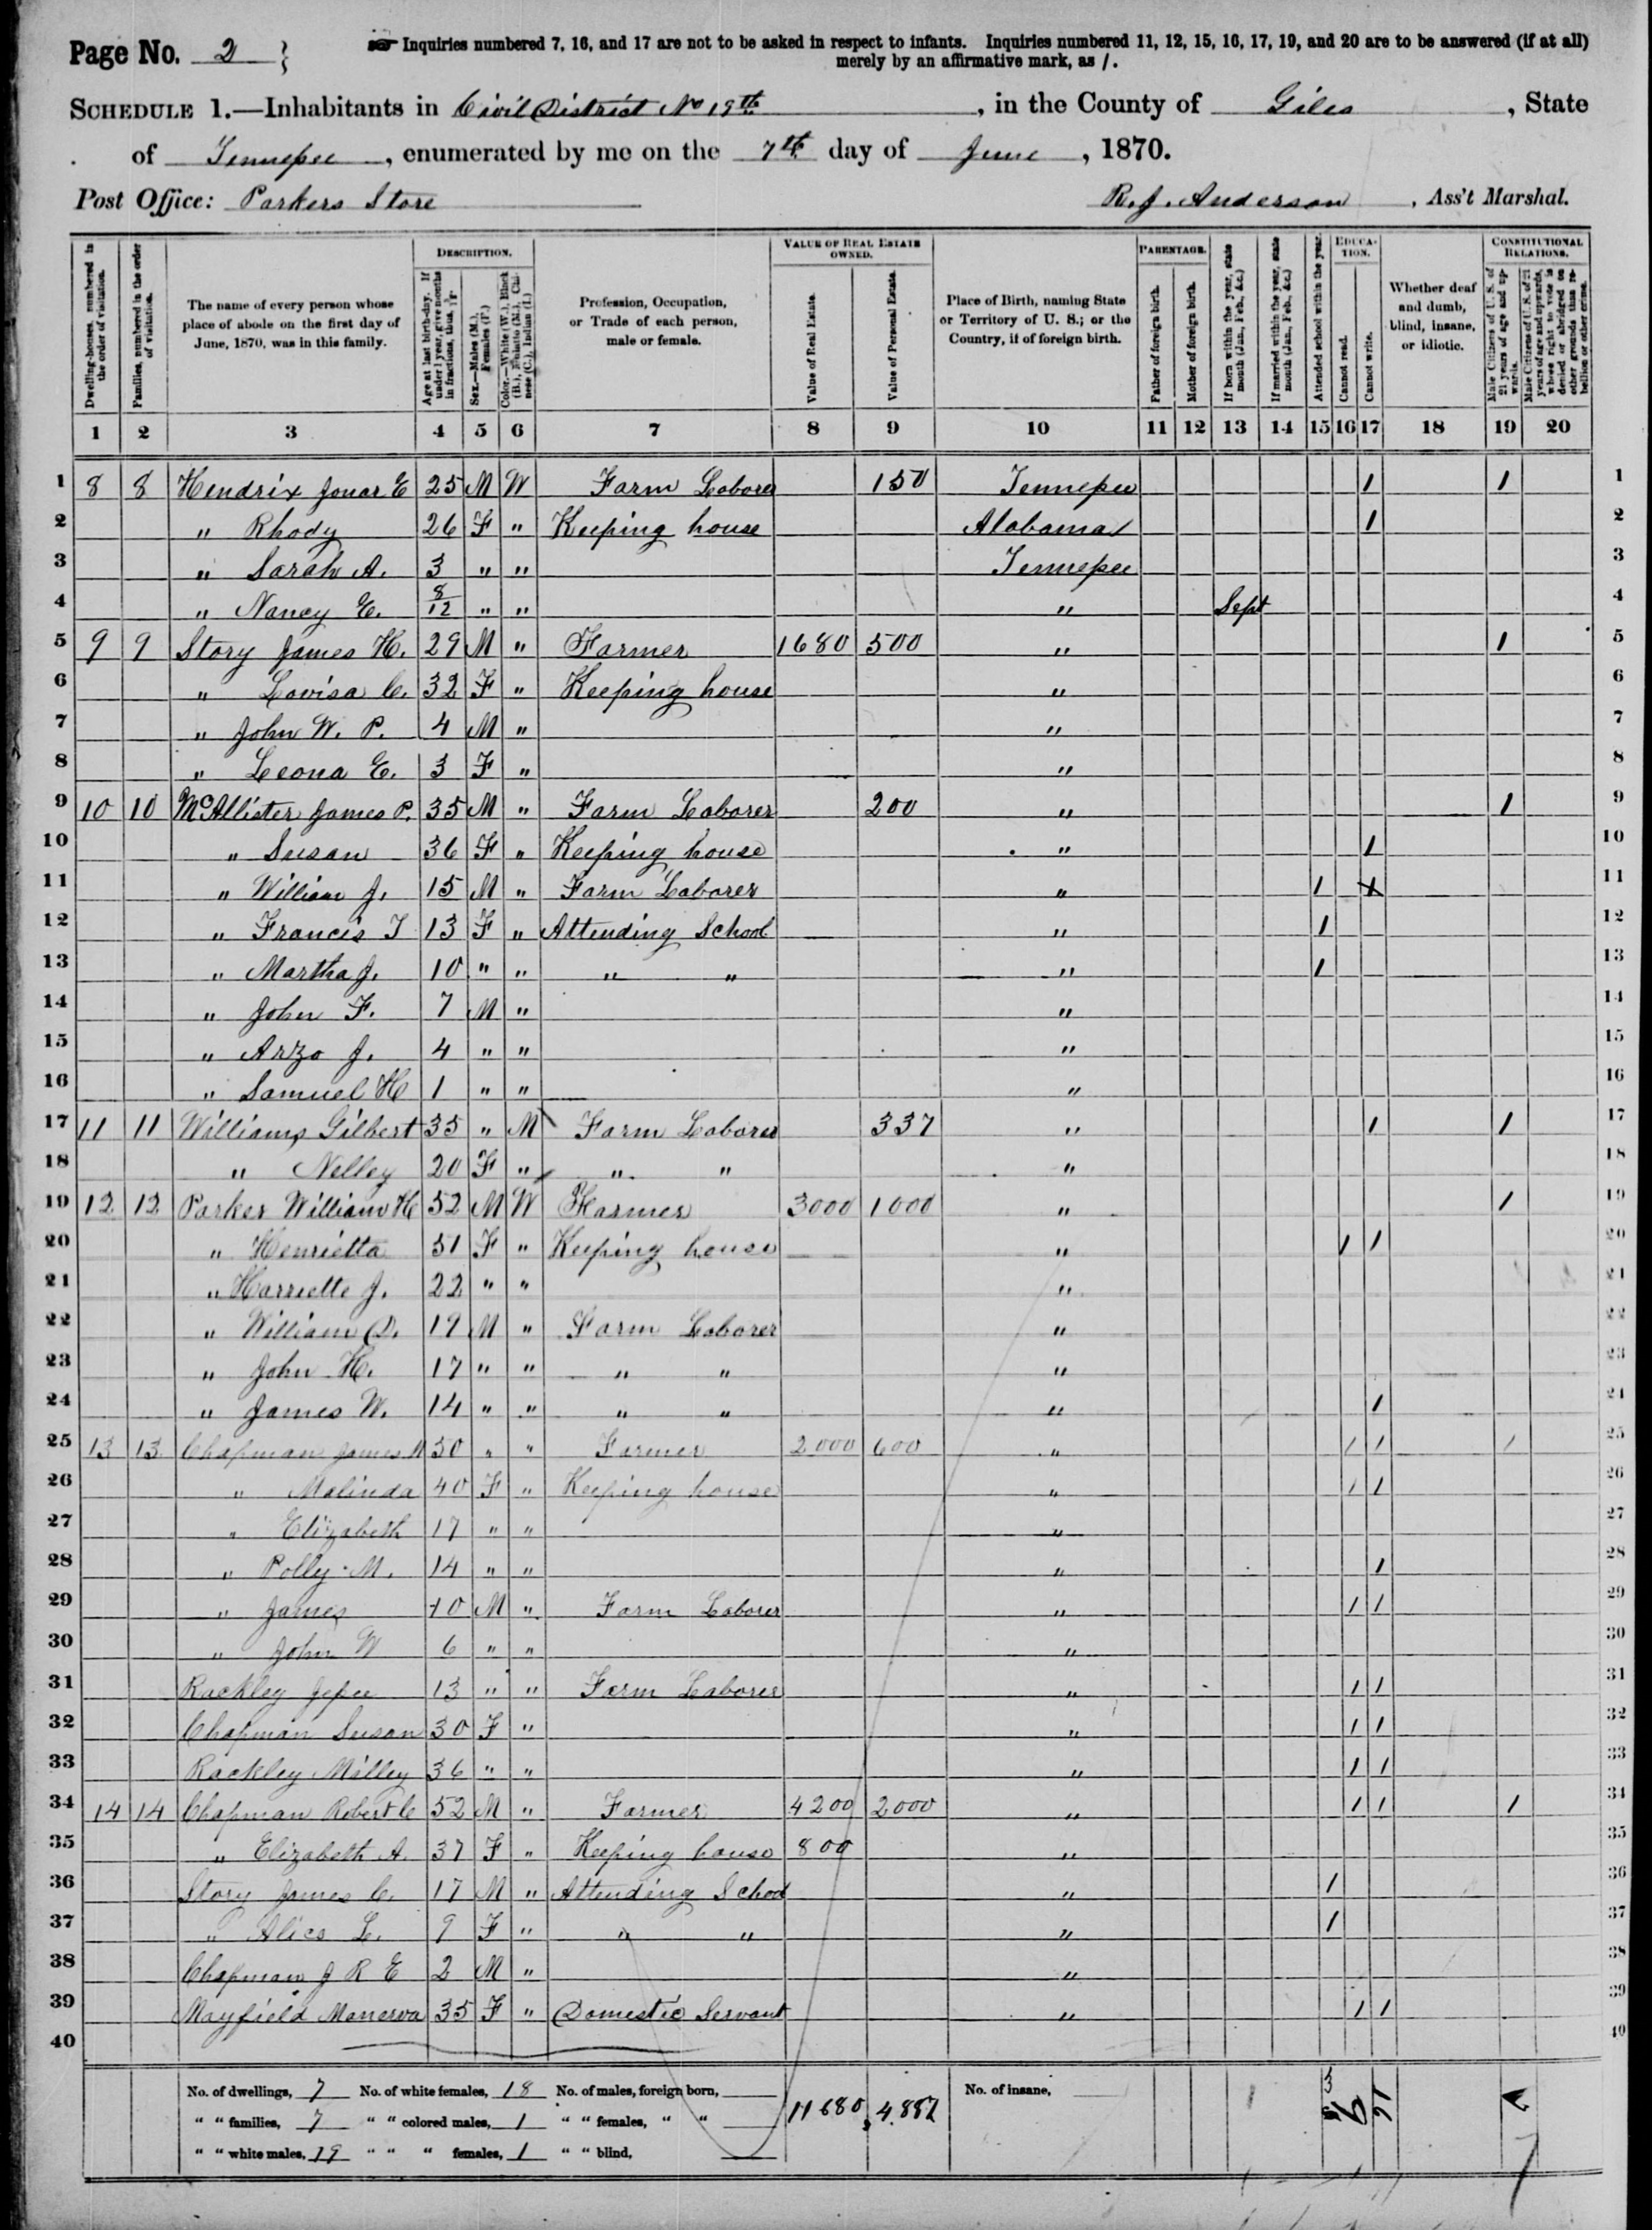 Page No. 2
Inquiries numbered 7, 16, and 17 are not to be asked in respect to infants. Inquiries numbered 11, 12, 15, 16, 17, 19, and 20 are to be answered (if at all)
merely by an affirmative mark, as /.
SCHEDULE 1.—Inhabitants in Civil District No 19th, in the County of Giles, State
of Tennessee, enumerated by me on the 7th day of June, 1870.
Post Office: Parkers Store R. J. Anderson, Ass't Marshal.
Dwelling-houses, numbered in the order of visitation.
Families, numbered in the order of visitation.
The name of every person whose place of abode on the first day of June, 1870, was in this family.
DESCRIPTION.
Age at last birth-day. If under 1 year, give months in fractions, thus,
Sex.—Males (M.), Females (F.)
Color.—White (W.), Black (B.), Mulatto (M.), Chinese (C.), Indian (I.)
Profession, Occupation, or Trade of each person, male or female.
VALUE OF REAL ESTATE OWNED.
Value of Real Estate.
Value of Personal Estate.
Place of Birth, naming State or Territory of U. S.; or the Country, if of foreign birth.
PARENTAGE.
Father of foreign birth.
Mother of foreign birth.
If born within the year, state month (Jan., Feb., &c.)
If married within the year, state month (Jan., Feb., &c.)
EDUCATION.
Attended school within the year.
Cannot read.
Cannot write.
Whether deaf and dumb, blind, insane, or idiotic.
CONSTITUTIONAL RELATIONS.
Male Citizens of U. S. of 21 years of age and upwards.
Male Citizens of U. S. of 21 years of age and upwards, whose right to vote is denied or abridged on other grounds than rebellion or other crime.
1 2 3 4 5 6 7 8 9 10 11 12 13 14 15 16 17 18 19 20
1 8 8 Hendrix Jonar E 25 M W Farm Laborer 150 Tennessee / / 1
2 " Rhody 26 F " Keeping house Alabama / 2
3 " Sarah A. 3 " " Tennessee 3
4 " Nancy E. 8/12 " " " Sept 4
5 9 9 Story James H. 29 M " Farmer 1680 500 " / 5
6 " Lovisa C. 32 F " Keeping house " 6
7 " John W. P. 4 M " " 7
8 " Leona E. 3 F " " 8
9 10 10 McAllister James P. 35 M " Farm Laborer 200 " / 9
10 " Susan 36 F " Keeping house " / 10
11 " William J. 15 M " Farm Laborer " / 11
12 " Francis T 13 F " Attending School " / 12
13 " Martha J. 10 " " " " " / 13
14 " John F. 7 M " " 14
15 " Arzo J. 4 " " " 15
16 " Samuel H 1 " " " 16
17 11 11 Williams Gilbert 35 " M Farm Laborer 337 " / / 17
18 " Nelley 20 F " " " " 18
19 12 12 Parker William H 52 M W Farmer 3000 1000 " / 19
20 " Henrietta 51 F " Keeping house " / / 20
21 " Harriette J. 22 " " " 21
22 " William D. 19 M " Farm Laborer " 22
23 " John H. 17 " " " " " 23
24 " James W. 14 " " " " " / 24
25 13 13 Chapman James M 50 " " Farmer 2000 600 " / / / 25
26 " Malinda 40 F " Keeping house " / / 26
27 " Elizabeth 17 " " " 27
28 " Polly M. 14 " " " / 28
29 " James 10 M " Farm Laborer " / / 29
30 " John W 6 " " " 30
31 Rackley Jesse 13 " " Farm Laborer " / / 31
32 Chapman Susan 30 F " " / / 32
33 Rackley Milley 36 " " " / / 33
34 14 14 Chapman Robert C 52 M " Farmer 4200 2000 " / / / 34
35 " Elizabeth A. 37 F " Keeping house 800 " 35
36 Story James C. 17 M " Attending School " / 36
37 " Alice L. 9 F " " " " / 37
38 Chapman J R E 2 M " " 38
39 Mayfield Manerva 35 F " Domestic Servant " / / 39
40 40
No. of dwellings, 7 No. of white females, 18 No. of males, foreign born, 11680 4.887 No. of insane,
" " families, 7 " " colored males, 1 " " females, " "
" " white males, 19 " " " females, 1 " " blind,